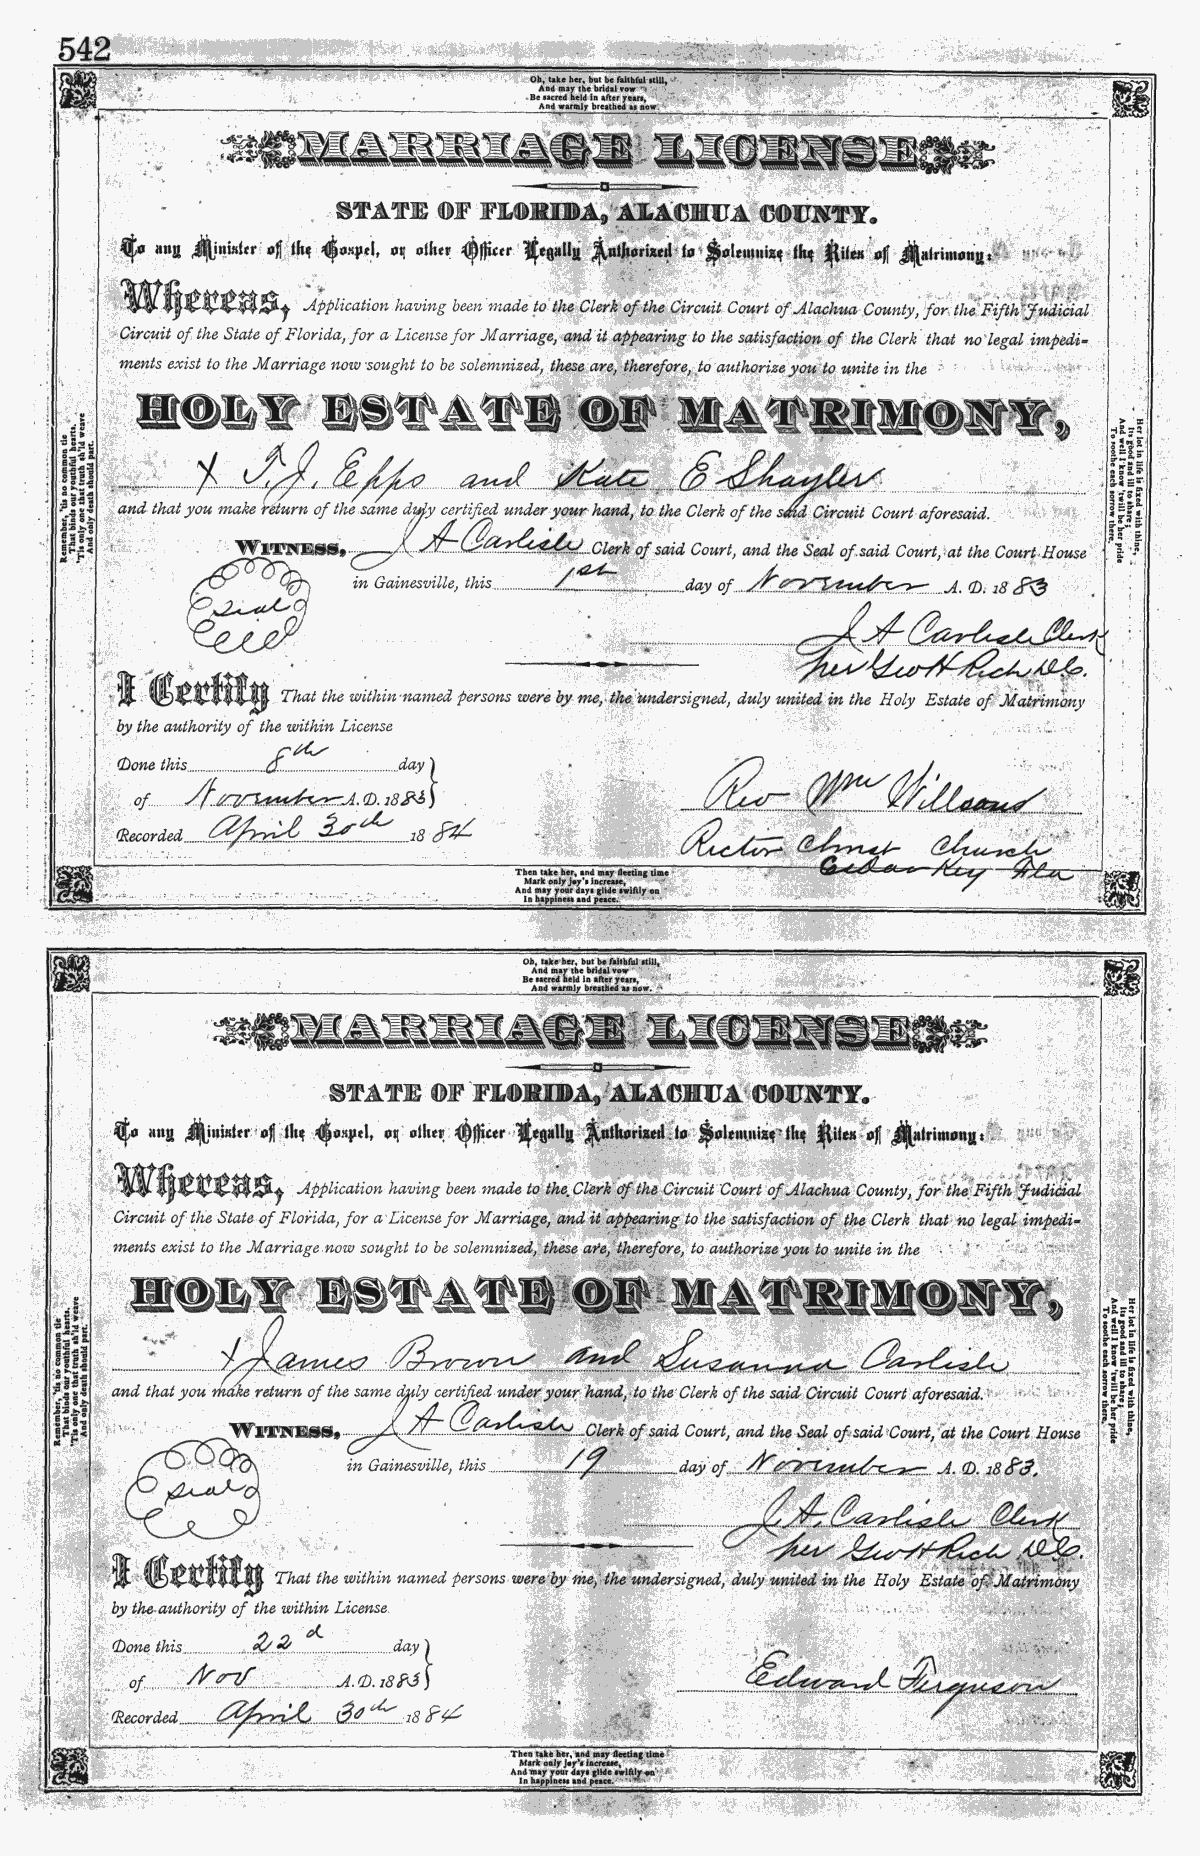 542
Oh, take her, but be faithful still,
And may the bridal vow
Be sacred held in after years,
And warmly breathed as now.
MARRIAGE LICENSE
STATE OF FLORIDA, ALACHUA COUNTY.
To any Minister of the Gospel, or other Officer Legally Authorized to Solemnize the Rites of Matrimony:
Whereas, Application having been made to the Clerk of the Circuit Court of Alachua County, for the Fifth Judicial
Circuit of the State of Florida, for a License for Marriage, and it appearing to the satisfaction of the Clerk that no legal impedi-
ments exist to the Marriage now sought to be solemnized, these are, therefore, to authorize you to unite in the
HOLY ESTATE OF MATRIMONY,
x T. J. Epps and Kate E Shayler
and that you make return of the same duly certified under your hand, to the Clerk of the said Circuit Court aforesaid.
WITNESS, J A Carlisle Clerk of said Court, and the Seal of said Court, at the Court House
seal
in Gainesville, this 1st day of November A. D. 1883
J A Carlisle Clerk
per Geo H Rich D.C.
I Certify That the within named persons were by me, the undersigned, duly united in the Holy Estate of Matrimony
by the authority of the within License
Done this 8th day
of November A.D. 1883
Recorded April 30th 1884
Rev Wm Willsons
Rector Christ Church
Cedar Key Fla
Remember, 'tis no common tie
That binds our youthful hearts,
'Tis only one that truth sh'ld weave
And only death should part.
Her lot in life is fixed with thine,
Its good and ill to share;
And well I know 'twill be her pride
To soothe each sorrow there.
Then take her, and may fleeting time
Mark only joy's increase,
And may your days glide swiftly on
In happiness and peace.
Oh, take her, but be faithful still,
And may the bridal vow
Be sacred held in after years,
And warmly breathed as now.
MARRIAGE LICENSE
STATE OF FLORIDA, ALACHUA COUNTY.
To any Minister of the Gospel, or other Officer Legally Authorized to Solemnize the Rites of Matrimony:
Whereas, Application having been made to the Clerk of the Circuit Court of Alachua County, for the Fifth Judicial
Circuit of the State of Florida, for a License for Marriage, and it appearing to the satisfaction of the Clerk that no legal impedi-
ments exist to the Marriage now sought to be solemnized, these are, therefore, to authorize you to unite in the
HOLY ESTATE OF MATRIMONY,
x James Brown and Susanna Carlisle
and that you make return of the same duly certified under your hand, to the Clerk of the said Circuit Court aforesaid.
WITNESS, J A Carlisle Clerk of said Court, and the Seal of said Court, at the Court House
seal
in Gainesville, this 19 day of November A. D. 1883.
J. A. Carlisle Clerk
per Geo H Rich D.C.
I Certify That the within named persons were by me, the undersigned, duly united in the Holy Estate of Matrimony
by the authority of the within License
Done this 22d day
of Nov A.D. 1883
Recorded April 30th 1884
Edward Ferguson
Remember, 'tis no common tie
That binds our youthful hearts,
'Tis only one that truth sh'ld weave
And only death should part.
Her lot in life is fixed with thine,
Its good and ill to share;
And well I know 'twill be her pride
To soothe each sorrow there.
Then take her, and may fleeting time
Mark only joy's increase,
And may your days glide swiftly on
In happiness and peace.